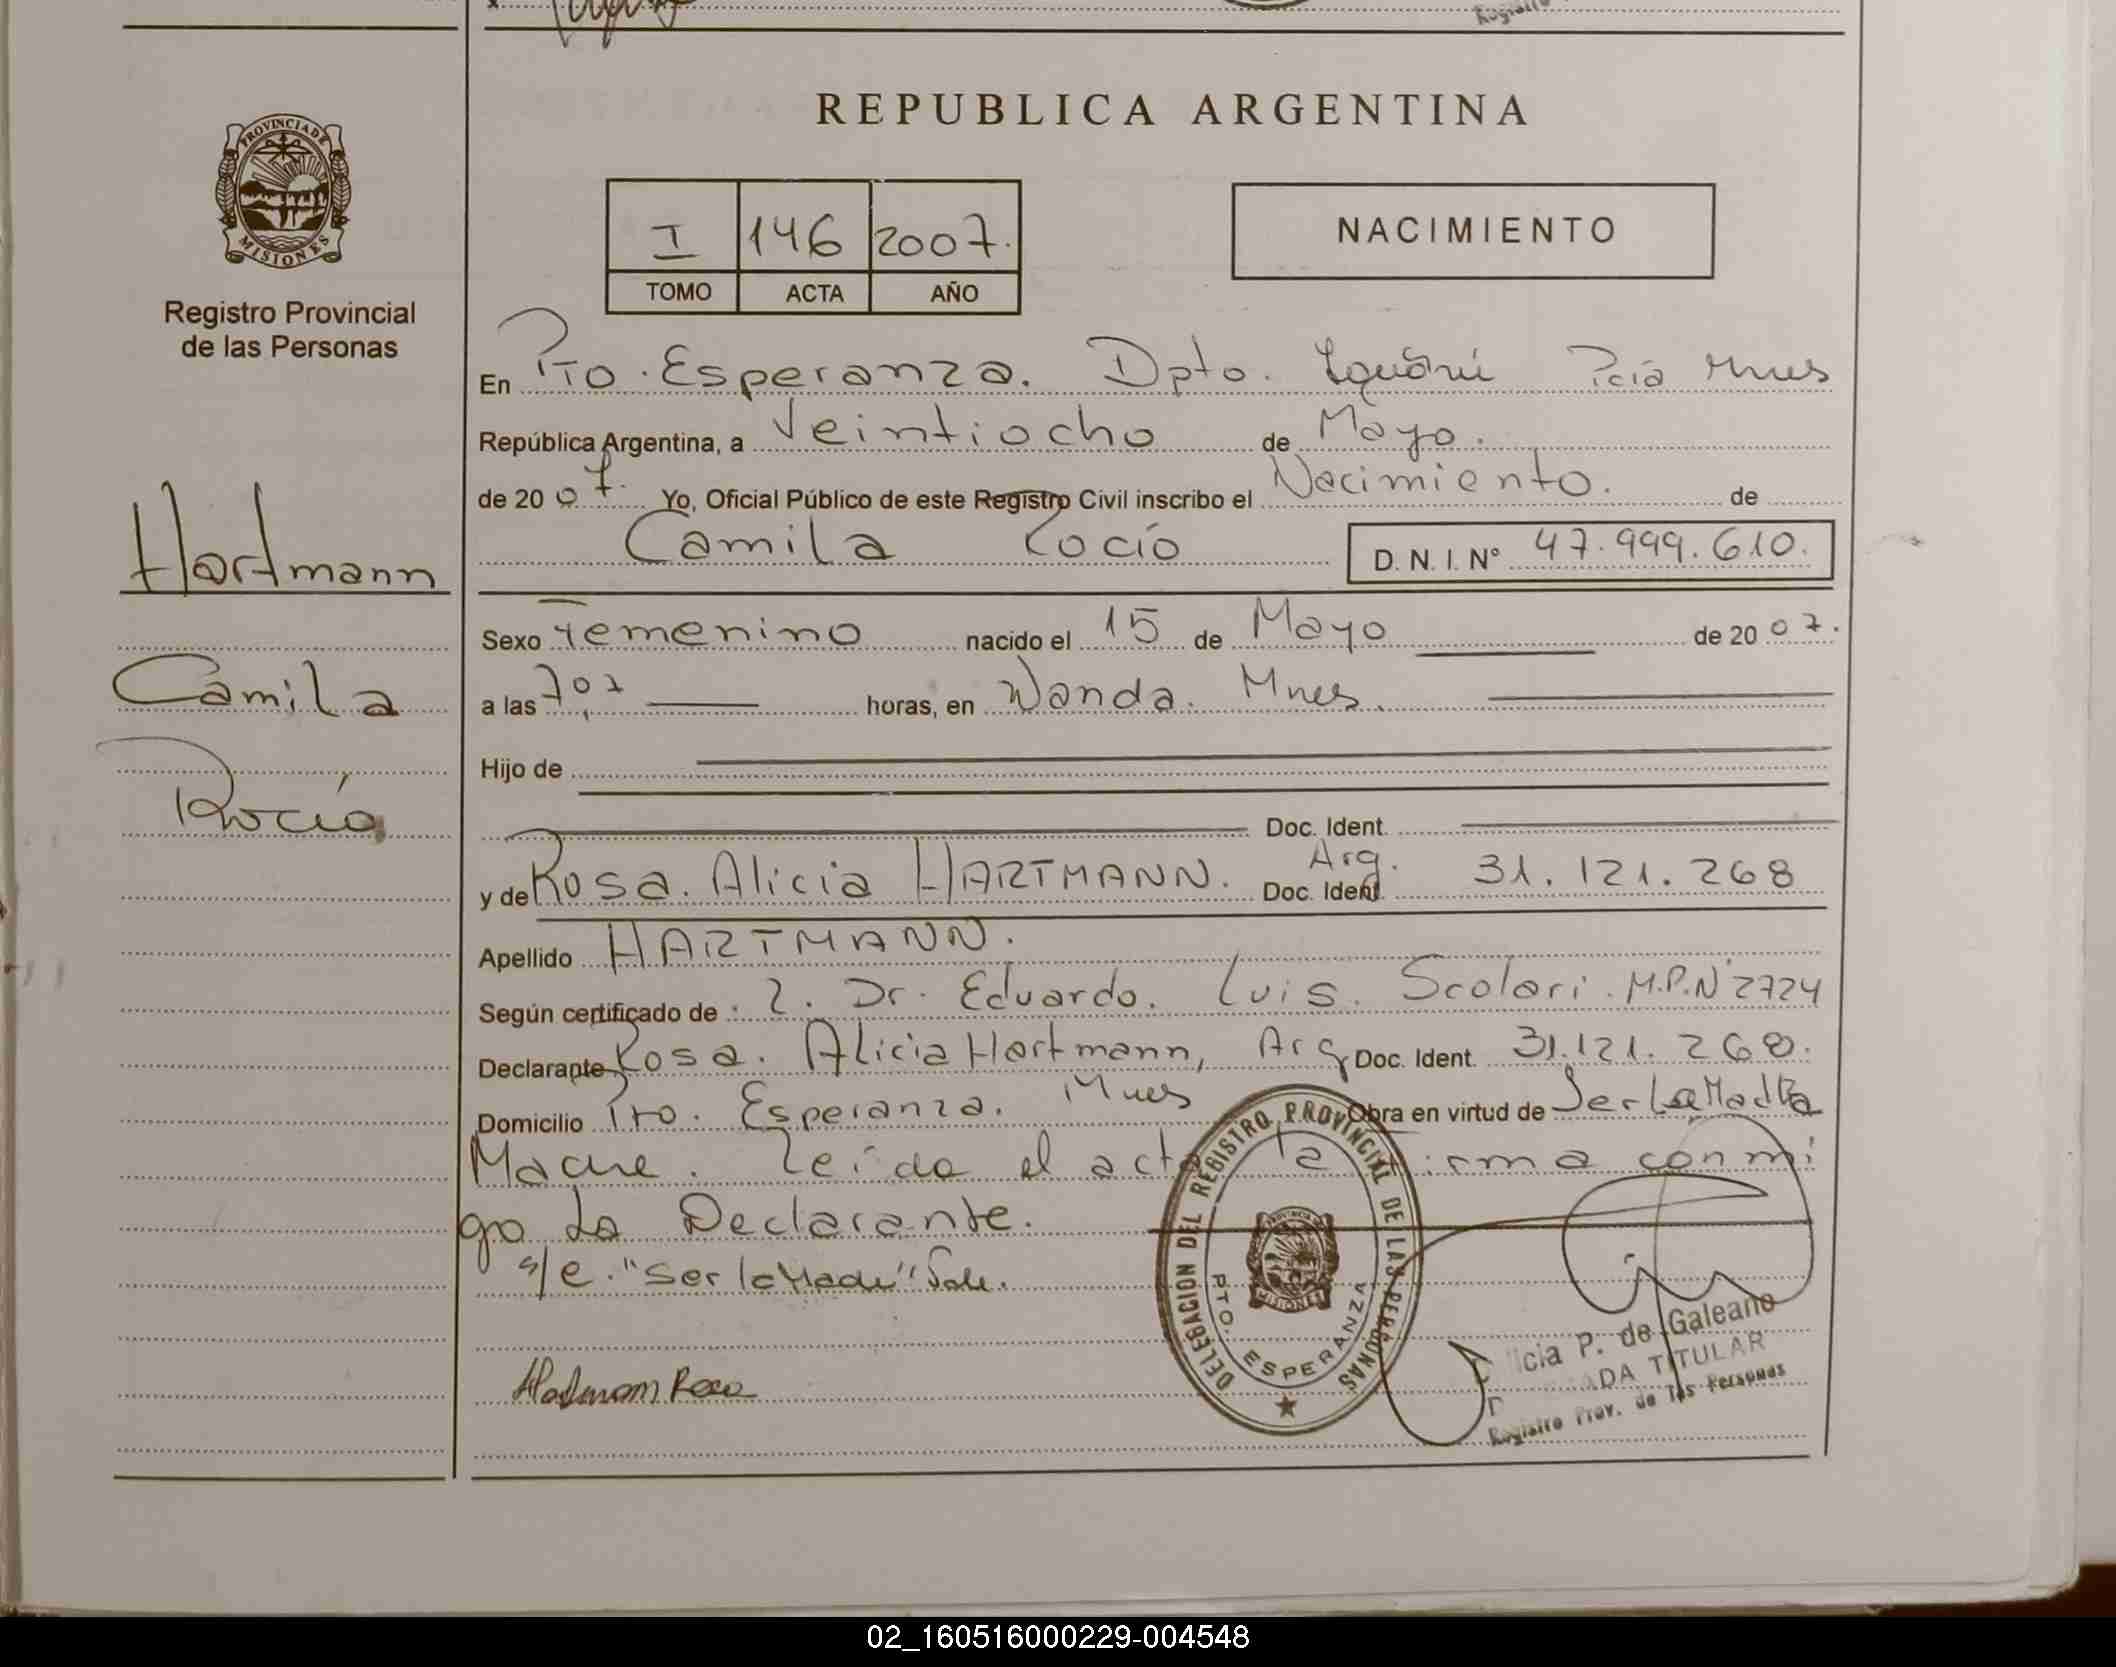 REPUBLICA ARGENTINA
PROVINCIA DE
MISIONES
Registro Provincial
de las Personas
I 146 2007.
TOMO ACTA AÑO
NACIMIENTO
En Pto. Esperanza. Dpto. Iguazú Pcia Mnes
República Argentina, a Veintiocho de Mayo.
de 2007. Yo, Oficial Público de este Registro Civil inscribo el Nacimiento. de
Camila Rocío D. N. I. Nº 47.999.610.
Hartmann
Camila
Rocío
Sexo Femenino nacido el 15 de Mayo de 2007.
a las 7,07 horas, en Wanda. Mnes.
Hijo de
Doc. Ident.
y de Rosa. Alicia HARTMANN. Arg. Doc. Ident. 31.121.268
Apellido HARTMANN.
Según certificado de : Dr. Eduardo. Luis. Scolari. M.P.Nº 2724
Declarante Rosa. Alicia Hartmann, Arg Doc. Ident. 31.121.268.
Domicilio Pto. Esperanza. Mnes Obra en virtud de Ser La Madre
Madre. Leída el acta la firma conmi
go La Declarante.
s/e. "Ser la Madre" Vale.
Hartmann Rosa
DELEGACION DEL REGISTRO PROVINCIAL DE LAS PERSONAS
PTO. ESPERANZA
PROVINCIA DE
MISIONES
icia P. de Galeano
ADA TITULAR
Registro Prov. de las Personas
02_160516000229-004548